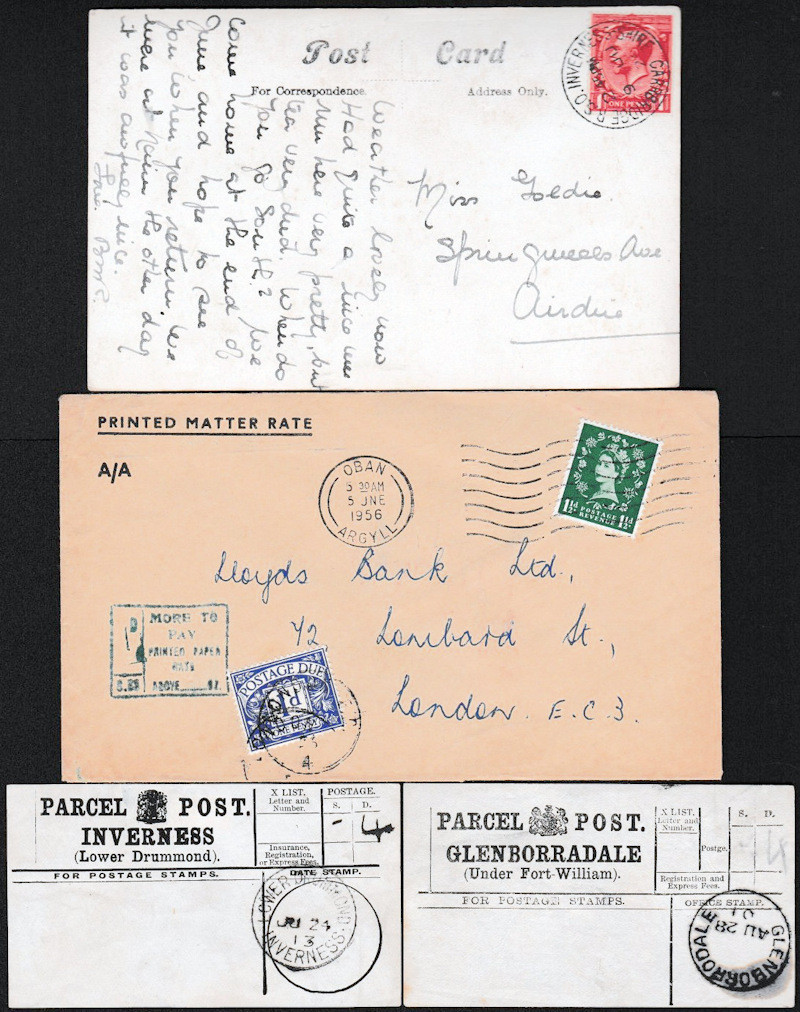 Post Card
For Correspondence. Address Only.
CARRBRIDGE R.S.O. INVERNESS-SHIRE
ONE PENNY
Weather lovely now
Had quite a nice
run here very pretty, but
very dud. When do
you go South? We
come home at the end of
June and hope to see
you when you return. We
were at Nairn the other day
it was awfully nice.
Love
Miss Goldie
Ave
Airdrie
PRINTED MATTER RATE
A/A
OBAN
5 30AM
5 JNE
1956
ARGYLL
1½D POSTAGE REVENUE 1½D
Lloyds Bank Ltd.,
72 Lombard St.,
London. E.C.3.
MORE TO
PAY
PRINTED PAPER
RATE
ABOVE
POSTAGE DUE
1D
ONE PENNY
PARCEL POST.
INVERNESS
(Lower Drummond).
FOR POSTAGE STAMPS.
X LIST.
Letter and
Number.
POSTAGE.
S. D.
- 4
Insurance,
Registration,
or Express Fees.
DATE STAMP.
LOWER DRUMMOND
JU 24
13
INVERNESS
PARCEL POST.
GLENBORRADALE
(Under Fort-William).
FOR POSTAGE STAMPS.
X LIST.
Letter and
Number.
Postge.
S. D.
Registration and
Express Fees.
OFFICE STAMP.
GLENBORRODALE
AU 28
01